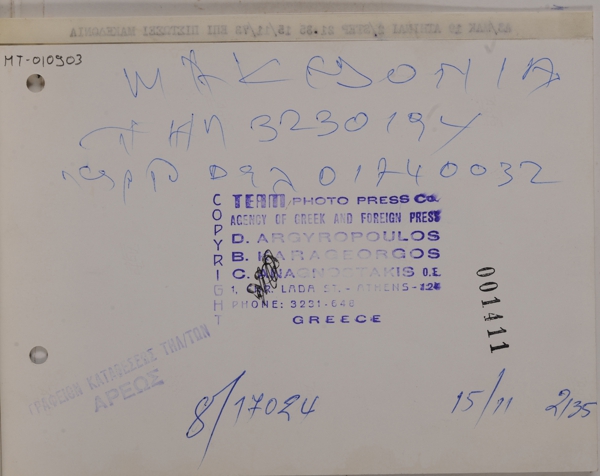 MT-010903
ΜΑΚΕDΟΝΙΑ
3230194
01740032
COPYRIGHT
TEAM PHOTO PRESS Co.
AGENCY OF GREEK AND FOREIGN PRESS
D. ARGYROPOULOS
B. KARAGEORGOS
C. ANAGNOSTAKIS O.E.
1, CHR. LADA ST. - ATHENS - 124
PHONE: 3231-648
GREECE
001411
ΓΡΑΦΕΙΟΝ ΚΑΤΑΘΕΣΕΩΣ ΤΗΛ/ΤΩΝ
ΑΡΕΩΣ
8/17024
15/11 2135